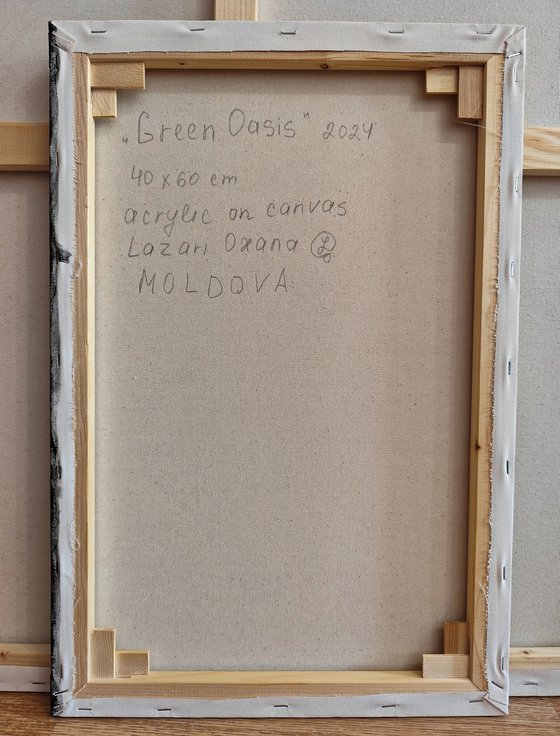 „Green Oasis" 2024
40 x 60 cm
acrylic on canvas
Lazari Oxana
MOLDOVA